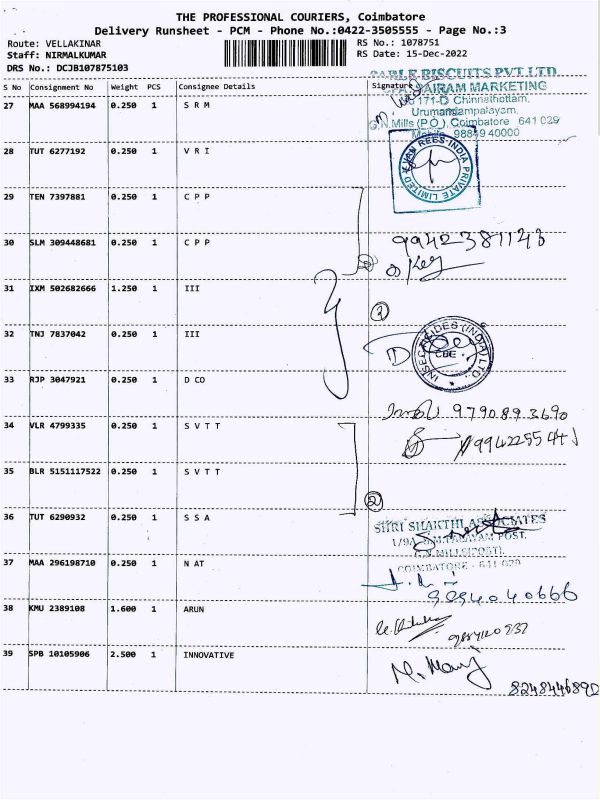 THE PROFESSIONAL COURIERS, Coimbatore
Delivery Runsheet - PCM - Phone No.:0422-3505555 - Page No.:3
Route: VELLAKINAR
RS No.: 1078751
Staff: NIRMALKUMAR
RS Date: 15-Dec-2022
DRS No.: DCJB107875103
S No Consignment No Weight PCS Consignee Details Signature
27 MAA 568994194 0.250 1 S R M
SAIRAM MARKETING
171-D Chinnathottam,
Urumandampalayam,
G.N.Mills (P.O.), Coimbatore 641 029
98849 40000
28 TUT 6277192 0.250 1 V R I
VAN REES INDIA PRIVATE LIMITED
29 TEN 7397881 0.250 1 C P P
30 SLM 309448681 0.250 1 C P P
31 IXM 502682666 1.250 1 III
3
32 TNJ 7837042 0.250 1 III
INSECTICIDES (INDIA) LTD.
CBE
33 RJP 3047921 0.250 1 D CO
9790893690
34 VLR 4799335 0.250 1 S V T T
35 BLR 5151117522 0.250 1 S V T T
2
36 TUT 6290932 0.250 1 S S A
SHRI SHAKTHI ASSOCIATES
COIMBATORE - 641 029
37 MAA 296198710 0.250 1 N AT
9294040666
38 KMU 2389108 1.600 1 ARUN
39 SPB 10105906 2.500 1 INNOVATIVE
8248446890